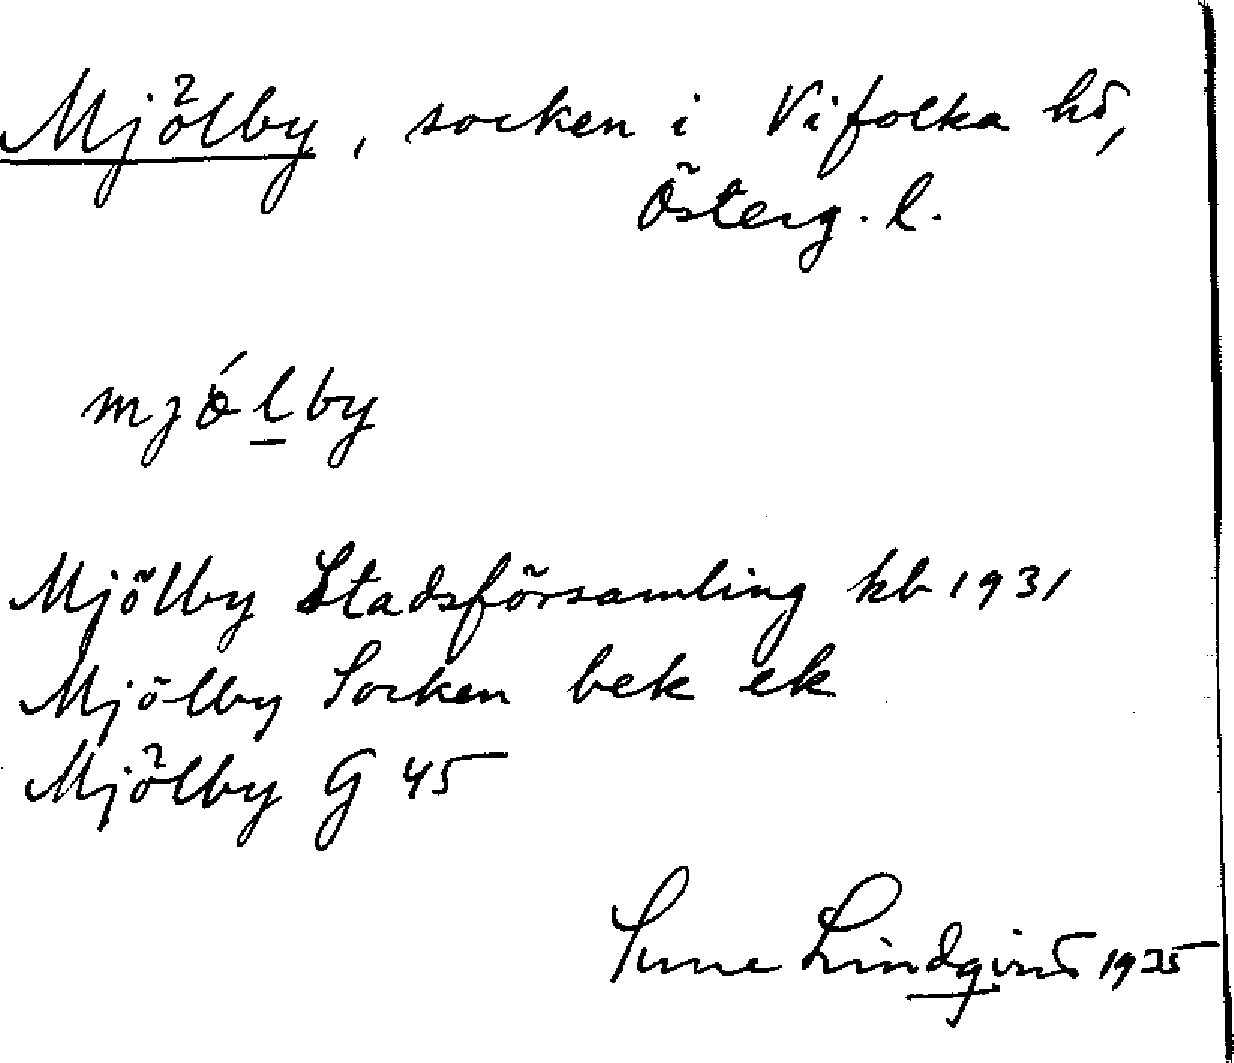 Mjölby, socken i Vifolka hd,
Österg. l.
mjólby
Mjölby Stadsförsamling kb 1931
Mjölby Socken bek ek
Mjölby G 45
Sune Lindqvist 1935